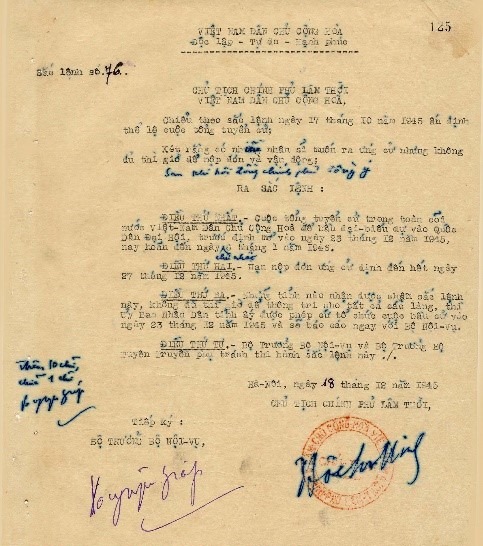 125
VIỆT NAM DÂN CHỦ CỘNG HÒA
Độc lập - Tự do - Hạnh phúc
Sắc lệnh số 76.
CHỦ TỊCH CHÍNH PHỦ LÂM THỜI
VIỆT NAM DÂN CHỦ CỘNG HOÀ,
Chiểu theo sắc lệnh ngày 17 tháng 10 năm 1945 ấn định
thể lệ cuộc tổng tuyển cử;
Xét rằng có nhiều nhân sĩ muốn ra ứng cử nhưng không
đủ thì giờ để nộp đơn và vận động;
Sau khi hội đồng chính phủ đồng ý
RA SẮC LỆNH :
ĐIỀU THỨ NHẤT.- Cuộc tổng tuyển cử trong toàn cõi
nước Việt-Nam Dân Chủ Cộng Hoà để bầu đại-biểu dự vào Quốc
Dân Đại Hội, trước định mở vào ngày 23 tháng 12 năm 1945,
nay hoãn đến ngày 6 tháng 1 năm 1946.
chủ nhật
ĐIỀU THỨ HAI.- Hạn nộp đơn ứng cử định đến hết ngày
27 tháng 12 năm 1945.
ĐIỀU THỨ BA.- Những tỉnh nào nhận được chậm sắc lệnh
này, không đủ thì giờ để thông tri cho tất cả các làng, Uỷ
Ban Nhân Dân tỉnh ấy được phép cứ tổ chức cuộc bầu cử vào
ngày 23 tháng 12 năm 1945 và sẽ báo cáo ngay với Bộ Nội-Vụ.
ĐIỀU THỨ TƯ.- Bộ Trưởng Bộ Nội-Vụ và Bộ Trưởng Bộ
Tuyên Truyền phụ trách thi hành sắc lệnh này ./.
Thêm 10 chữ,
chữa 1 chữ
Võ nguyên Giáp
Hà-Nội, ngày 18 tháng 12 năm 1945
CHỦ TỊCH CHÍNH PHỦ LÂM THỜI,
Tiếp ký :
BỘ TRƯỞNG BỘ NỘI-VỤ,
Hồ Chí Minh
Võ nguyên Giáp